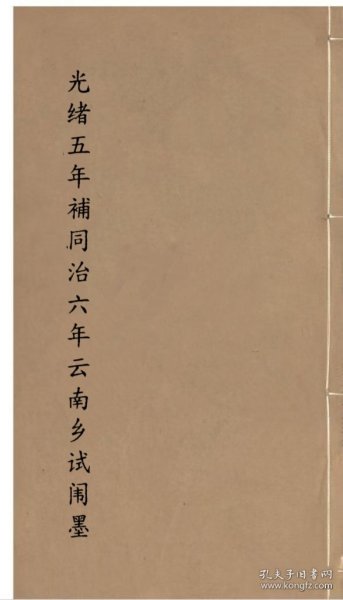 光绪五年補同治六年云南乡试闱墨
孔夫子旧书网
www.kongfz.com